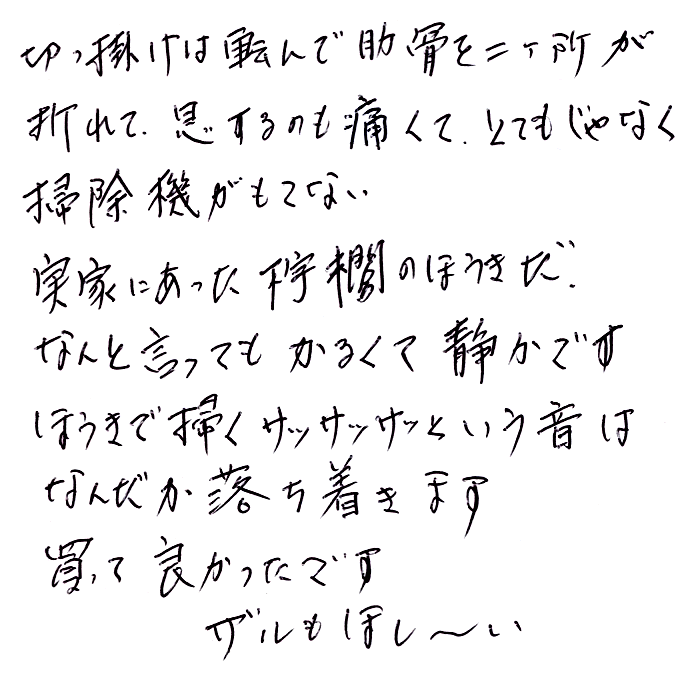 切っ掛けは転んで肋骨を二ヶ所が
折れて、息するのも痛くて、とてもじゃなく
掃除機がもてない
実家にあった棕櫚のほうきだ.
なんと言っても かるくて 静かです
ほうきで掃くサッサッサッという音は
なんだか落ち着きます
買って良かったです
ザルもほし〜い